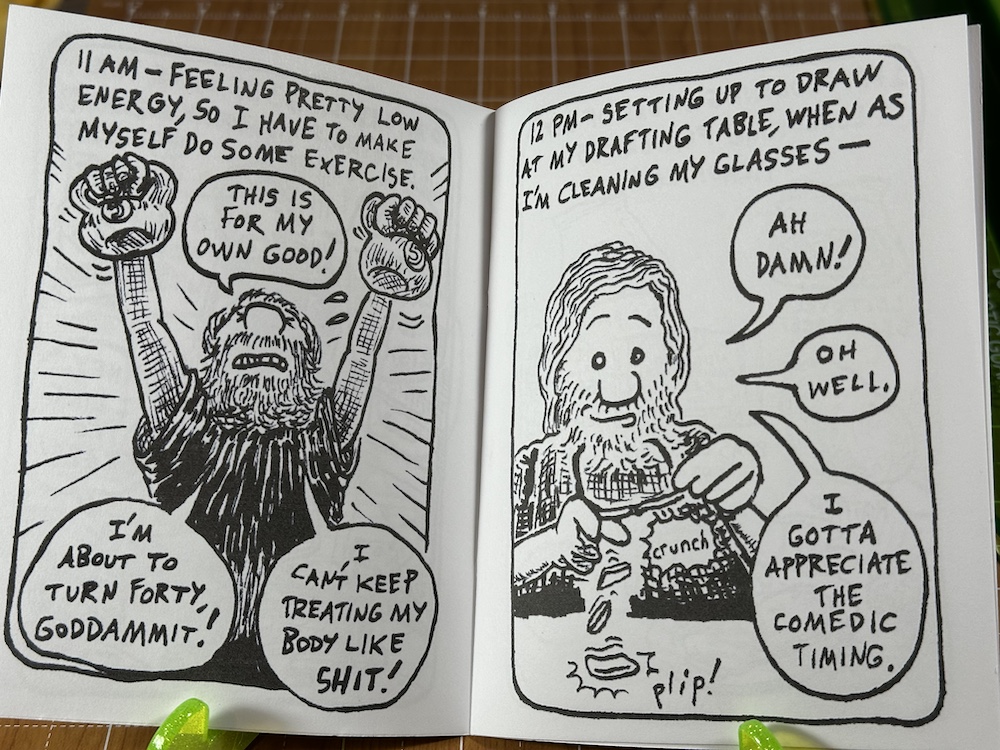 11 AM – FEELING PRETTY LOW
ENERGY, SO I HAVE TO MAKE
MYSELF DO SOME EXERCISE.
THIS IS
FOR MY
OWN GOOD!
I'M
ABOUT TO
TURN FORTY,
GODDAMMIT!
I
CAN'T KEEP
TREATING MY
BODY LIKE
SHIT!
12 PM – SETTING UP TO DRAW
AT MY DRAFTING TABLE, WHEN AS
I'M CLEANING MY GLASSES —
AH
DAMN!
OH
WELL.
I
GOTTA
APPRECIATE
THE
COMEDIC
TIMING.
crunch
plip!